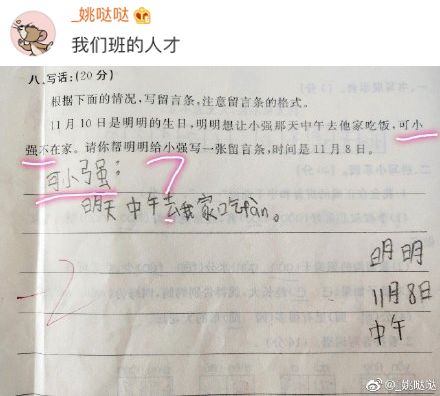 _姚哒哒
我们班的人才
八、写话:(20 分)
根据下面的情况,写留言条,注意留言条的格式。
11 月 10 日是明明的生日,明明想让小强那天中午去他家吃饭,可小
强不在家。请你帮明明给小强写一张留言条,时间是 11 月 8 日。
可小强：
明天中午去我家吃fàn。
明明
11月8日
中午
-2
@_姚哒哒